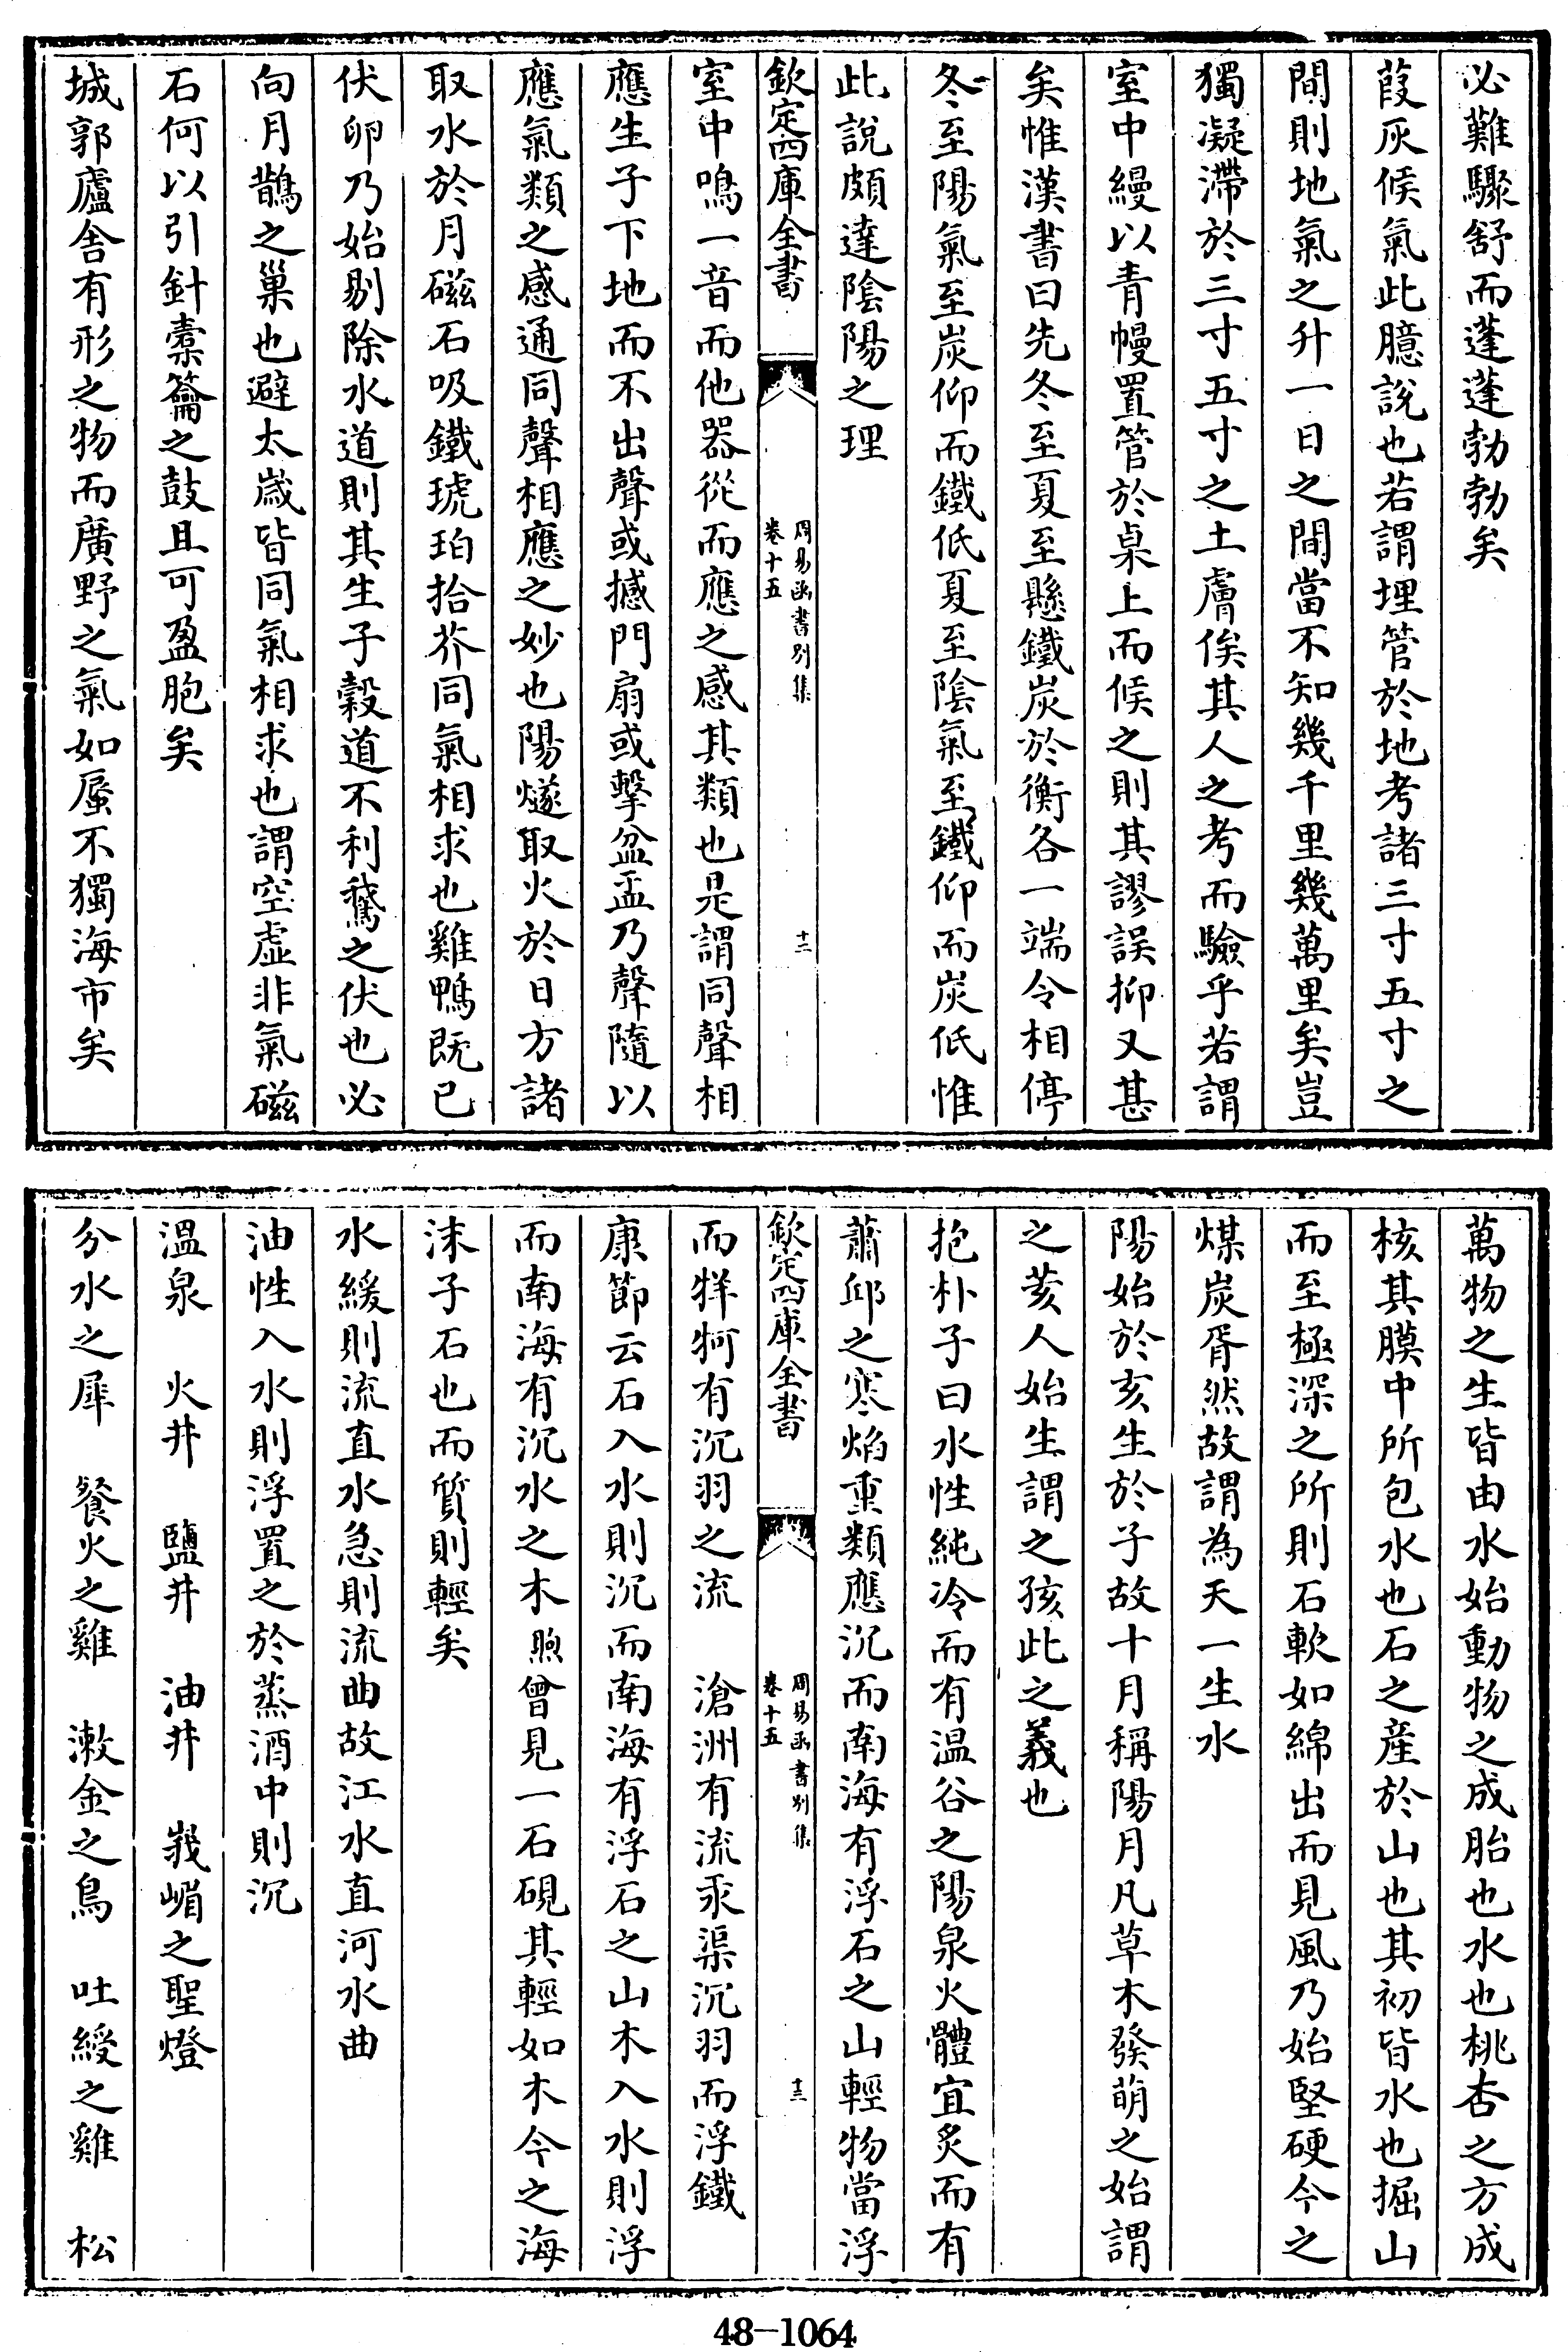 必難驟舒而蓬蓬勃勃矣
葭灰候氣此臆說也若謂埋管於地考諸三寸五寸之
間則地氣之升一日之間當不知幾千里幾萬里矣豈
獨凝滯於三寸五寸之土膚俟其人之考而驗乎若謂
室中縵以青幔置管於桌上而候之則其謬誤抑又甚
矣惟漢書曰先冬至夏至懸鐵炭於衡各一端令相停
冬至陽氣至炭仰而鐵低夏至陰氣至鐵仰而炭低惟
此說頗達陰陽之理
欽定四庫全書
周易函書別集
卷十五
十二
室中鳴一音而他器從而應之感其類也是謂同聲相
應生子下地而不出聲或撼門扇或擊盆盂乃聲隨以
應氣類之感通同聲相應之妙也陽燧取火於日方諸
取水於月磁石吸鐵琥珀拾芥同氣相求也雞鴨既已
伏卵乃始剔除水道則其生子穀道不利鵞之伏也必
向月鵲之巢也避太歲皆同氣相求也謂空虛非氣磁
石何以引針橐籥之鼓且可盈胞矣
城郭廬舍有形之物而廣野之氣如蜃不獨海市矣
萬物之生皆由水始動物之成胎也水也桃杏之方成
核其膜中所包水也石之產於山也其初皆水也掘山
而至極深之所則石軟如綿出而見風乃始堅硬今之
煤炭胥然故謂為天一生水
陽始於亥生於子故十月稱陽月凡草木發萌之始謂
之荄人始生謂之孩此之義也
抱朴子曰水性純冷而有温谷之陽泉火體宜炙而有
蕭邱之寒焰重類應沉而南海有浮石之山輕物當浮
欽定四庫全書
周易函書別集
卷十五
十三
而牂牁有沉羽之流　滄洲有流汞渠沉羽而浮鐵
康節云石入水則沉而南海有浮石之山木入水則浮
而南海有沉水之木煦曾見一石硯其輕如木今之海
沫子石也而質則輕矣
水緩則流直水急則流曲故江水直河水曲
油性入水則浮置之於蒸酒中則沉
溫泉　火井　鹽井　油井　峩嵋之聖燈
分水之犀　餐火之雞　漱金之鳥　吐綬之雞　松
48-1064